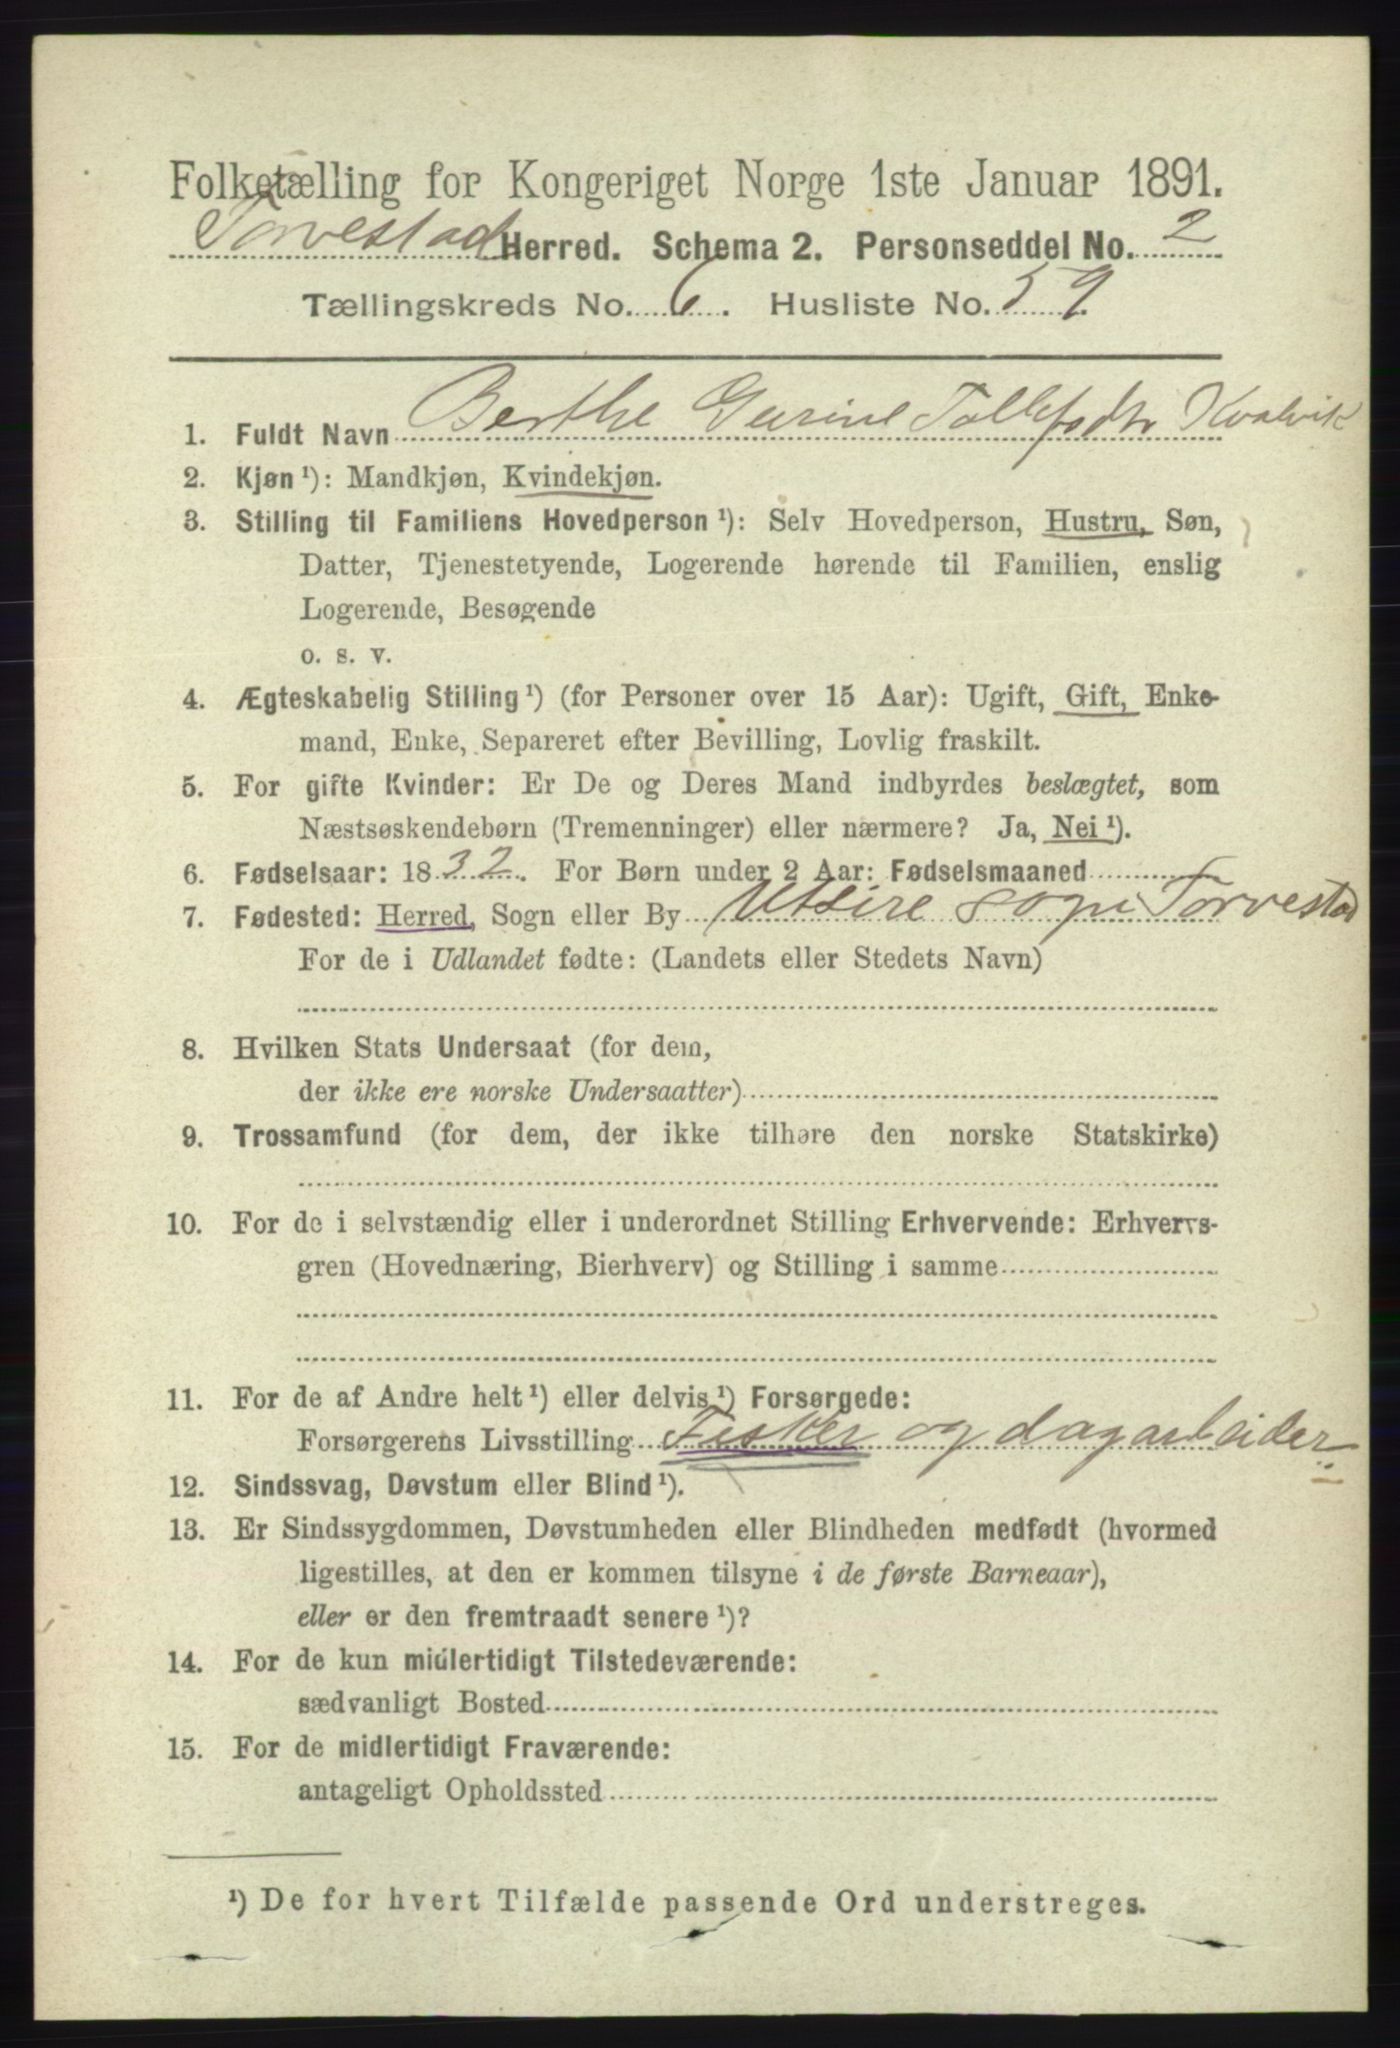 Folketælling for Kongeriget Norge 1ste Januar 1891.
Torvestad Herred. Schema 2. Personseddel No. 2
Tællingskreds No. 6. Husliste No. 59.
1. Fuldt Navn Berthe Gurine Tollefsdtr Kvalvik
2. Kjøn¹): Mandkjøn, Kvindekjøn.
3. Stilling til Familiens Hovedperson¹): Selv Hovedperson, Hustru, Søn,
Datter, Tjenestetyende, Logerende hørende til Familien, enslig
Logerende, Besøgende
o. s. v.
4. Ægteskabelig Stilling¹) (for Personer over 15 Aar): Ugift, Gift, Enke-
mand, Enke, Separeret efter Bevilling, Lovlig fraskilt.
5. For gifte Kvinder: Er De og Deres Mand indbyrdes beslægtet, som
Næstsøskendebørn (Tremenninger) eller nærmere? Ja, Nei¹).
6. Fødselsaar: 1832. For Børn under 2 Aar: Fødselsmaaned
7. Fødested: Herred, Sogn eller By Utsire sogn Torvestad
For de i Udlandet fødte: (Landets eller Stedets Navn)
8. Hvilken Stats Undersaat (for dem,
der ikke ere norske Undersaatter)
9. Trossamfund (for dem, der ikke tilhøre den norske Statskirke)
10. For de i selvstændig eller i underordnet Stilling Erhvervende: Erhvervs-
gren (Hovednæring, Bierhverv) og Stilling i samme
11. For de af Andre helt¹) eller delvis¹) Forsørgede:
Forsørgerens Livsstilling Fisker og dagarbeider
12. Sindssvag, Døvstum eller Blind¹).
13. Er Sindssygdommen, Døvstumheden eller Blindheden medfødt (hvormed
ligestilles, at den er kommen tilsyne i de første Barneaar),
eller er den fremtraadt senere¹)?
14. For de kun midlertidigt Tilstedeværende:
sædvanligt Bosted
15. For de midlertidigt Fraværende:
antageligt Opholdssted
¹) De for hvert Tilfælde passende Ord understreges.